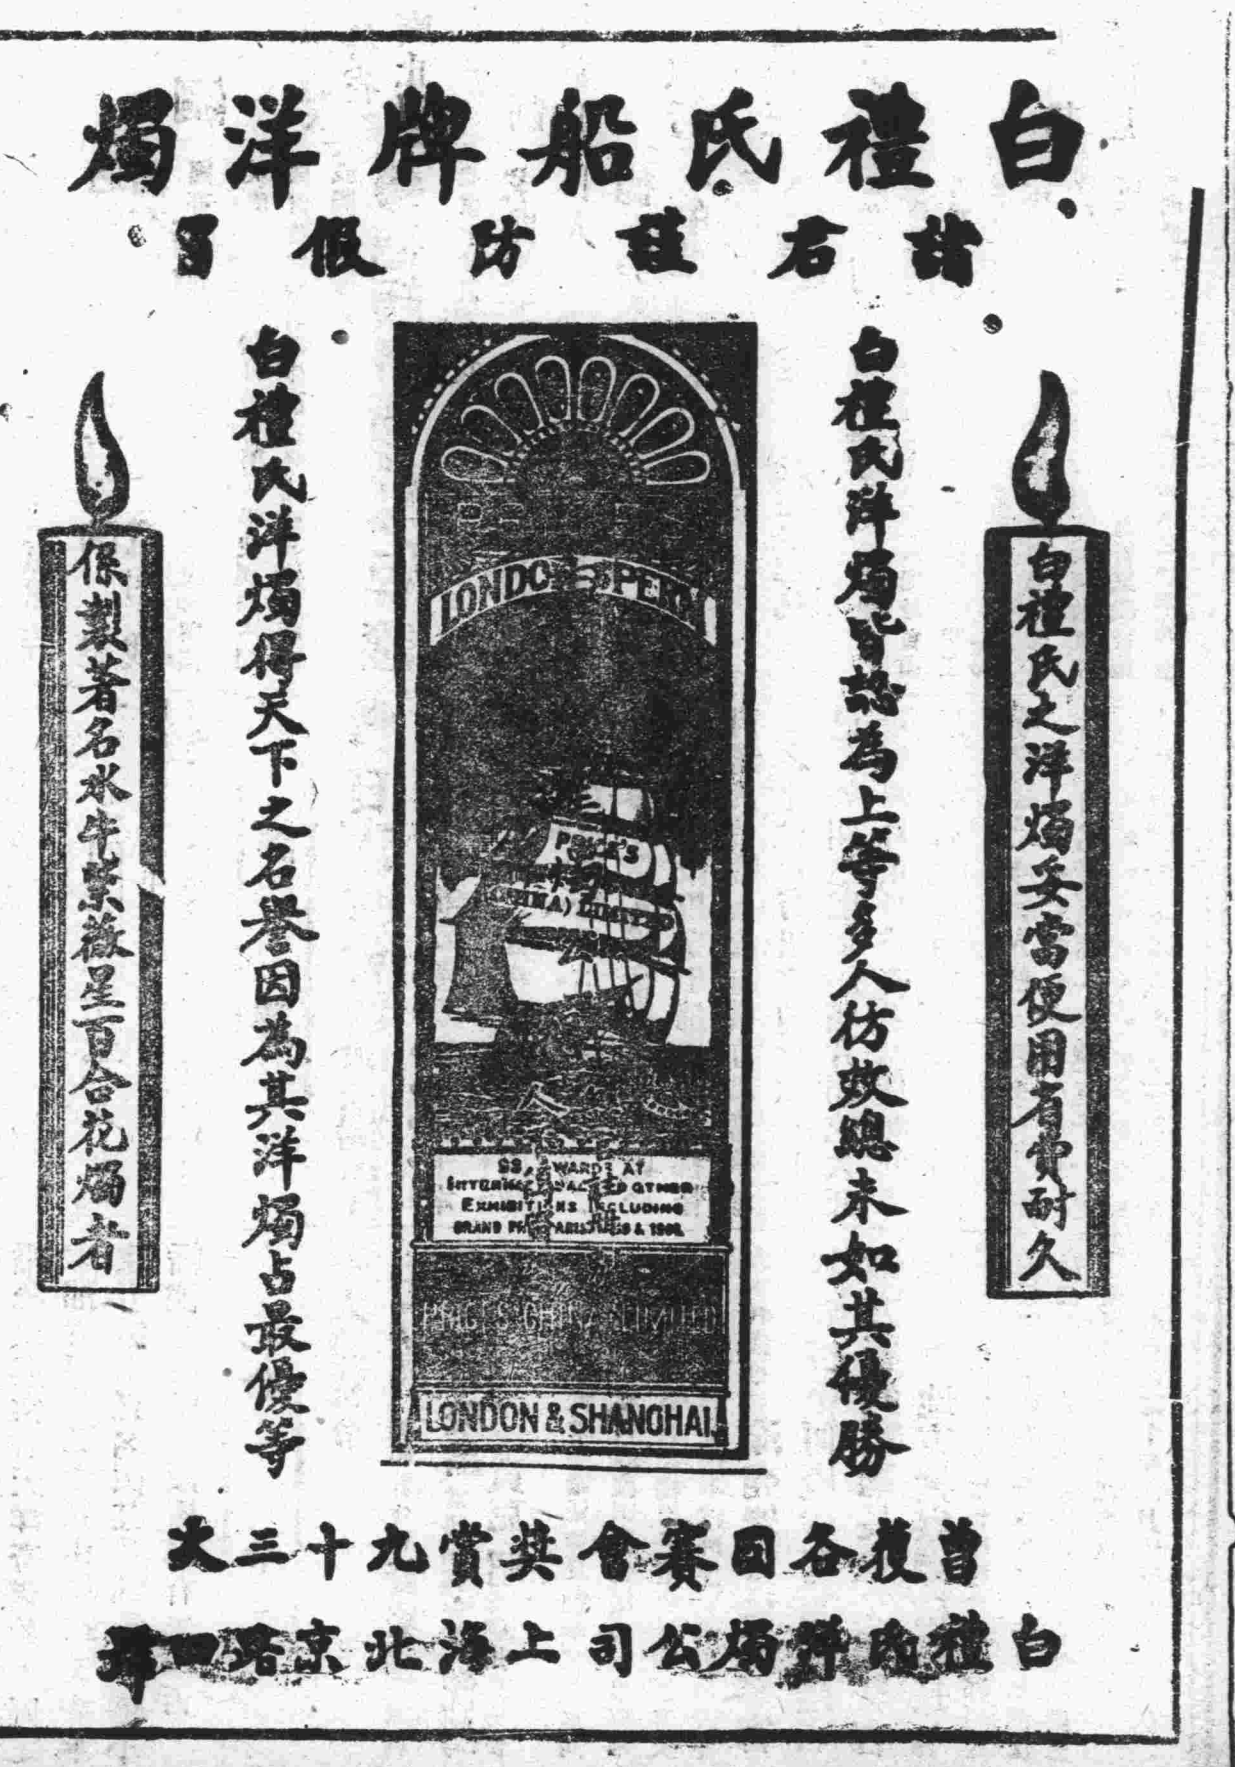 白禮氏船牌洋燭
諸君謹防假冒
白禮氏之洋燭妥當便用省費耐久
白禮氏洋燭皆認為上等多人仿效總未如其優勝
LONDON PERKY
PRICE'S
(CHINA) LIMITED
AWARDS AT
INTERNATIONAL AND OTHER
EXHIBITIONS INCLUDING
GRAND PRIX PARIS
PRICE'S CHINA LIMITED
LONDON & SHANGHAI
白禮氏洋燭得天下之名譽因為其洋燭占最優等
保製著名水牛紫薇星百合花燭者
曾獲各國賽會獎賞九十三次
白禮氏洋燭公司上海北京路四號